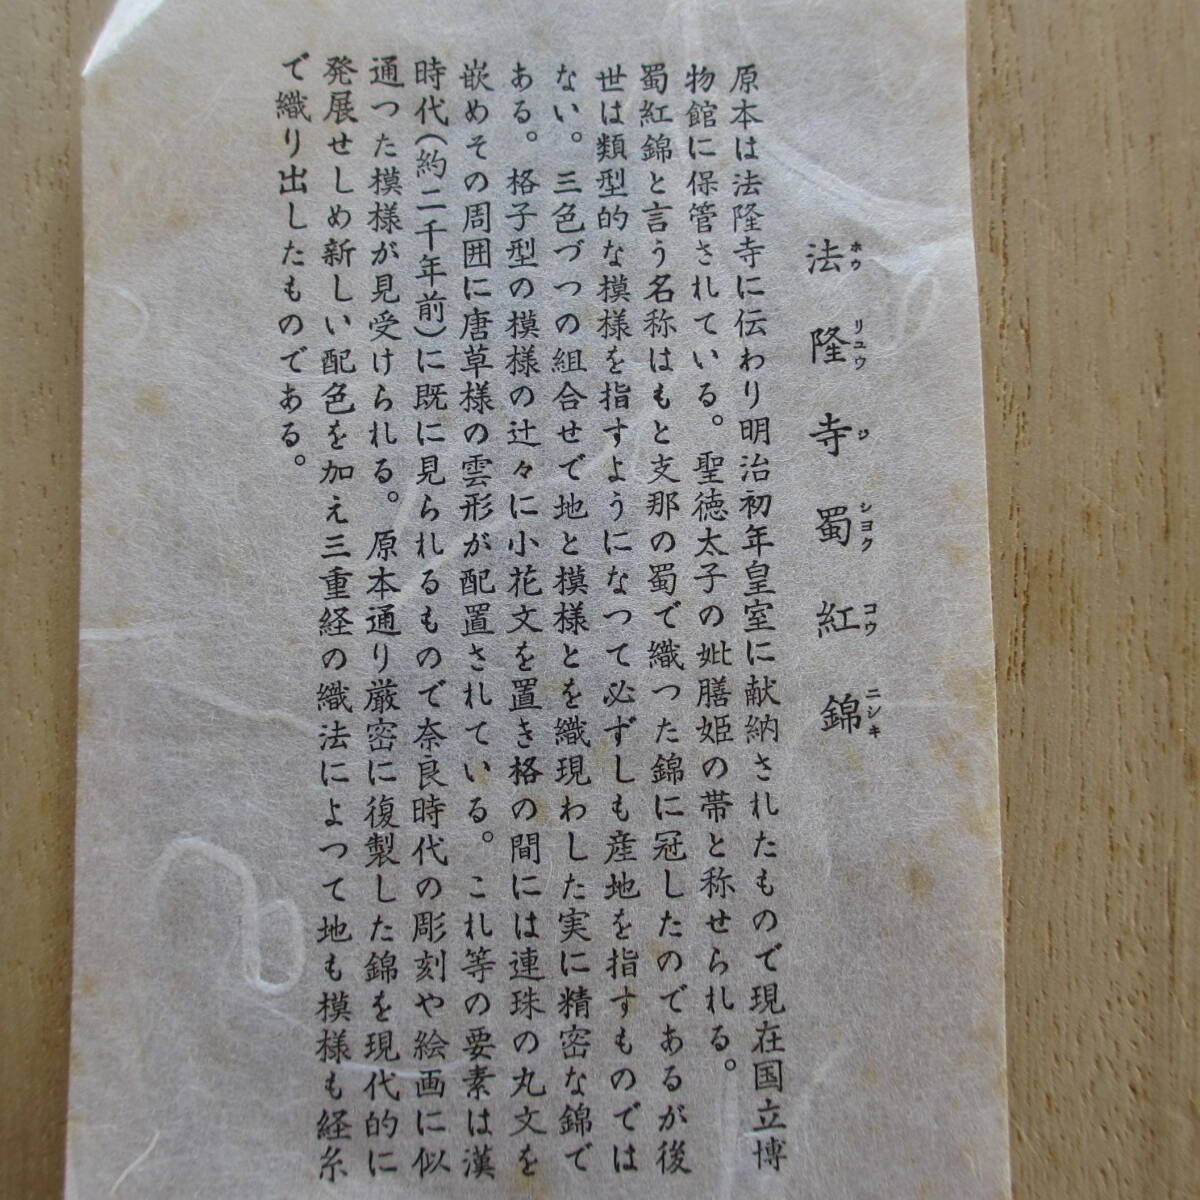 法隆寺蜀紅錦
ホウリユウジシヨクコウニシキ
原本は法隆寺に伝わり明治初年皇室に献納されたもので現在国立博
物館に保管されている。聖徳太子の妣膳姫の帯と称せられる。
蜀紅錦と言う名称はもと支那の蜀で織つた錦に冠したのであるが後
世は類型的な模様を指すようになつて必ずしも産地を指すものでは
ない。三色づつの組合せで地と模様とを織現わした実に精密な錦で
ある。格子型の模様の辻々に小花文を置き格の間には連珠の丸文を
嵌めその周囲に唐草様の雲形が配置されている。これ等の要素は漢
時代(約二千年前)に既に見られるもので奈良時代の彫刻や絵画に似
通つた模様が見受けられる。原本通り厳密に復製した錦を現代的に
発展せしめ新しい配色を加え三重経の織法によつて地も模様も経糸
で織り出したものである。